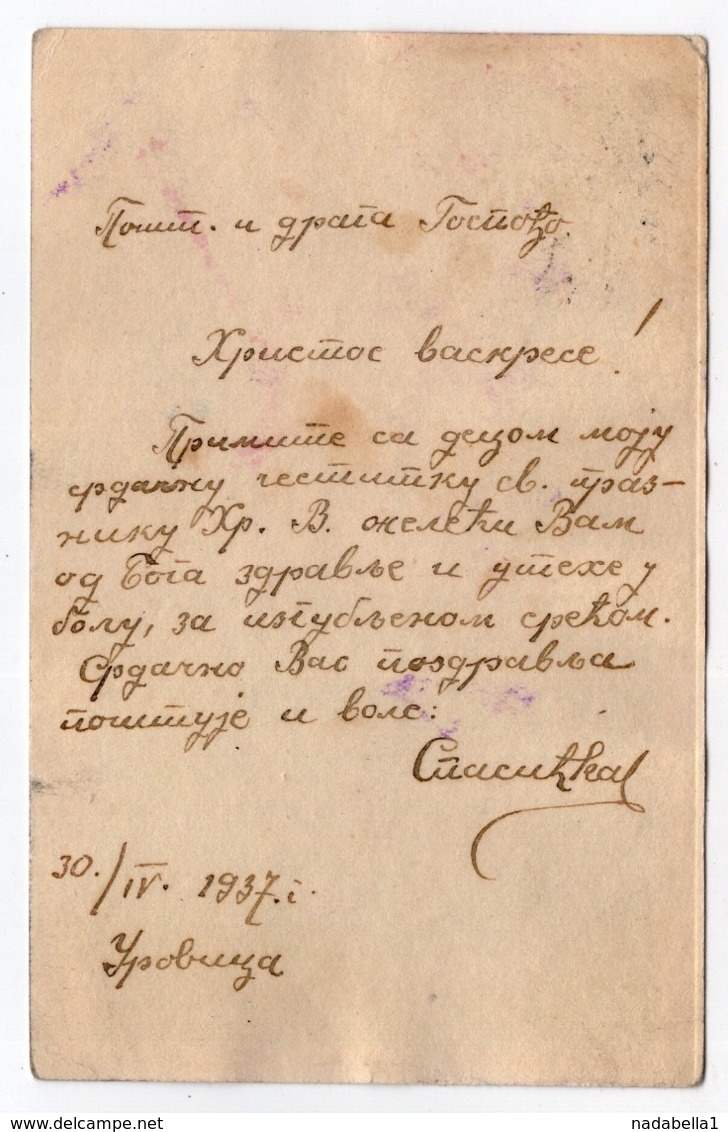 Пошт. и драга Госпођо
Христос васкресе!
Примите са децом моју
срдачну честитку св. праз-
нику Хр. В. желећи Вам
од Бога здравље и утехе у
болу, за изгубљеном срећом.
Срдачно Вас поздравља
поштује и воле:
30./IV. 1937. г.
Уровица
www.delcampe.net
nadabella1